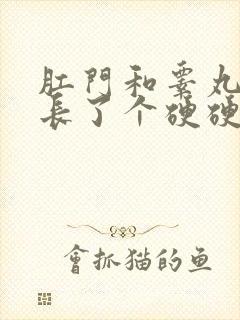 肛門和睾丸
長了个硬硬
會抓猫的鱼